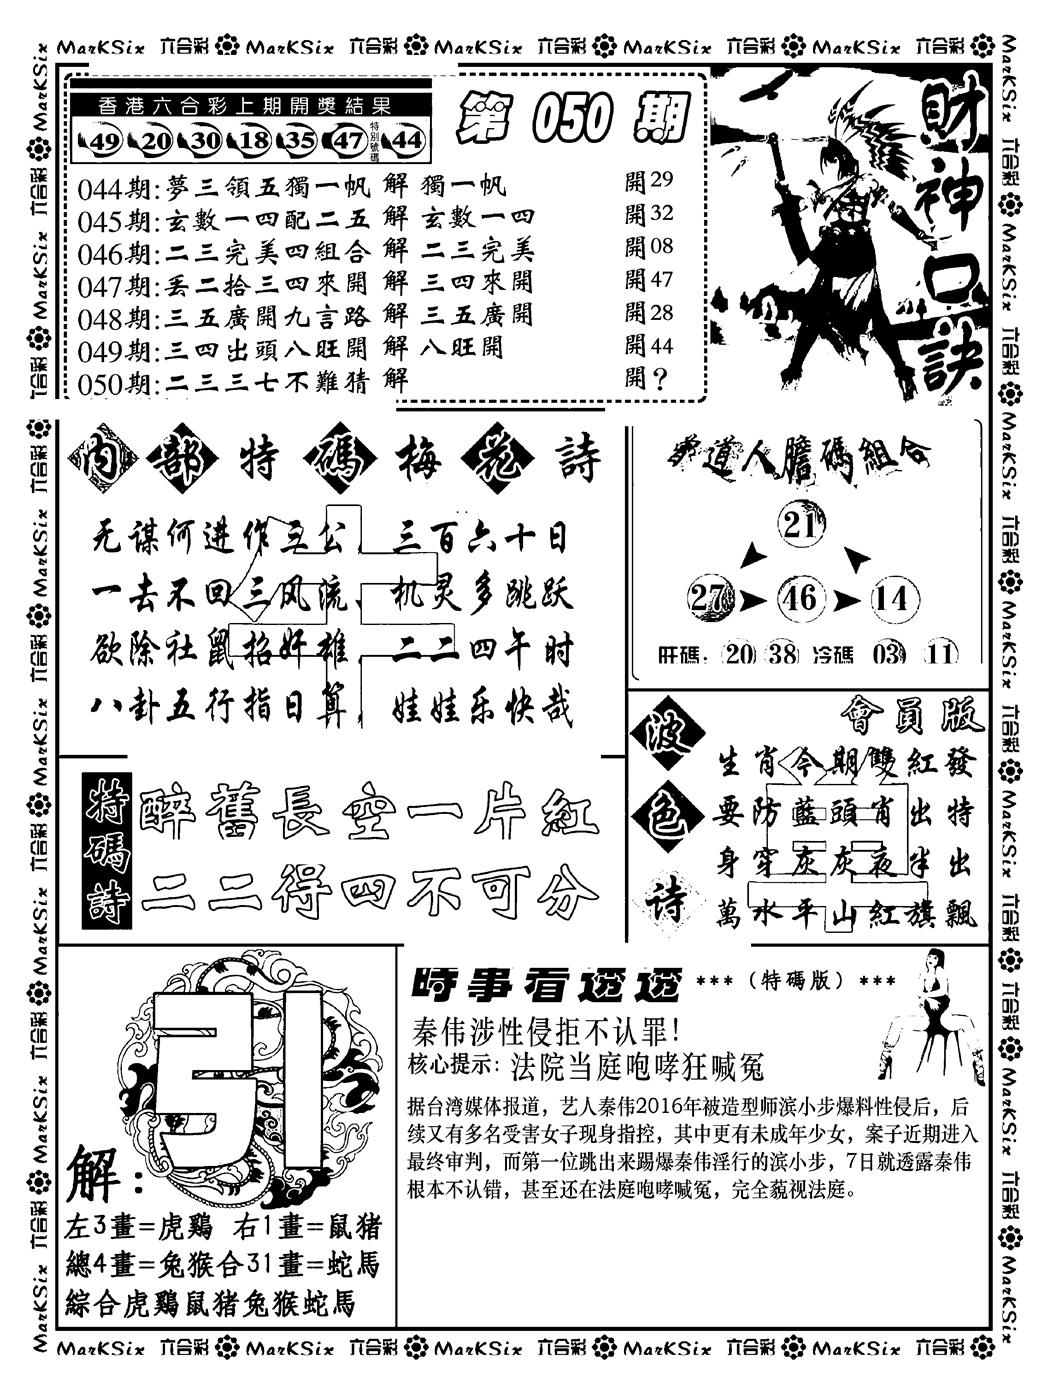 MarKSix 六合彩 MarKSix 六合彩 MarKSix 六合彩 MarKSix 六合彩 MarKSix 六合彩
香港六合彩上期開獎結果
49 20 30 18 35 47 特別號碼 44
第 050 期
044期:夢三領五獨一帆 解 獨一帆 開29
045期:玄數一四配二五 解 玄數一四 開32
046期:二三完美四組合 解 二三完美 開08
047期:丢二拾三四來開 解 三四來開 開47
048期:三五廣開九言路 解 三五廣開 開28
049期:三四出頭八旺開 解 八旺開 開44
050期:二三三七不難猜 解 開?
財神口訣
內部特碼梅花詩
无谋何进作五公，三百六十日
一去不回三风流，机灵多跳跃
欲除社鼠招奸雄，二二四午时
八卦五行指日算，娃娃乐快哉
道人膽碼組合
21
27 46 14
旺碼: 20 38 冷碼 03 11
特碼詩
醉舊長空一片紅
二二得四不可分
波色诗
會員版
生肖今期雙紅發
要防藍頭肖出特
身穿灰灰夜半出
萬水平山紅旗飄
引
解:
左3畫=虎鷄 右1畫=鼠猪
總4畫=兔猴合31畫=蛇馬
綜合虎鷄鼠猪兔猴蛇馬
時事看透透 ***(特碼版)***
秦伟涉性侵拒不认罪!
核心提示: 法院当庭咆哮狂喊冤
据台湾媒体报道，艺人秦伟2016年被造型师滨小步爆料性侵后，后
续又有多名受害女子现身指控，其中更有未成年少女，案子近期进入
最终审判，而第一位跳出来踢爆秦伟淫行的滨小步，7日就透露秦伟
根本不认错，甚至还在法庭咆哮喊冤，完全藐视法庭。
MarKSix 六合彩 MarKSix 六合彩 MarKSix 六合彩 MarKSix 六合彩 MarKSix 六合彩